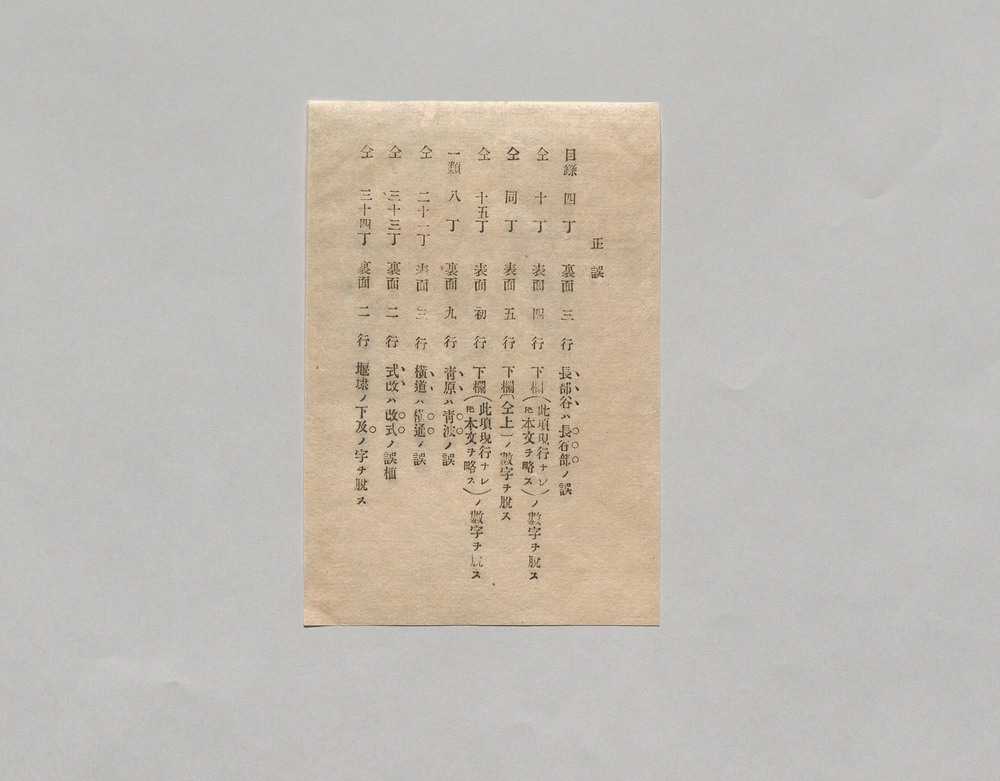 正誤
目錄 四丁 裏面 三行 長部谷ハ長谷部ノ誤
仝 十丁 表面 四行 下欄(此項現行ナレ𪜈本文ヲ略ス)ノ數字ヲ脫ス
仝 同丁 表面 五行 下欄(仝上)ノ數字ヲ脫ス
仝 十五丁 表面 初行 下欄(此項現行ナレ𪜈本文ヲ略ス)ノ數字ヲ脫ス
一類 八丁 裏面 九行 靑原ハ靑波ノ誤
仝 二十一丁 表面 三行 橫道ハ橫通ノ誤
仝 三十三丁 裏面 二行 式改ハ改式ノ誤植
仝 三十四丁 裏面 二行 堰埭ノ下及ノ字ヲ脫ス